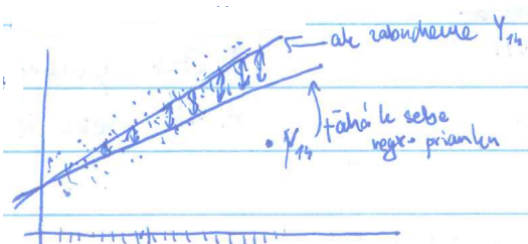 ak zabudneme Y₁₄
Y₁₄
ťahá k sebe
regr. priamku